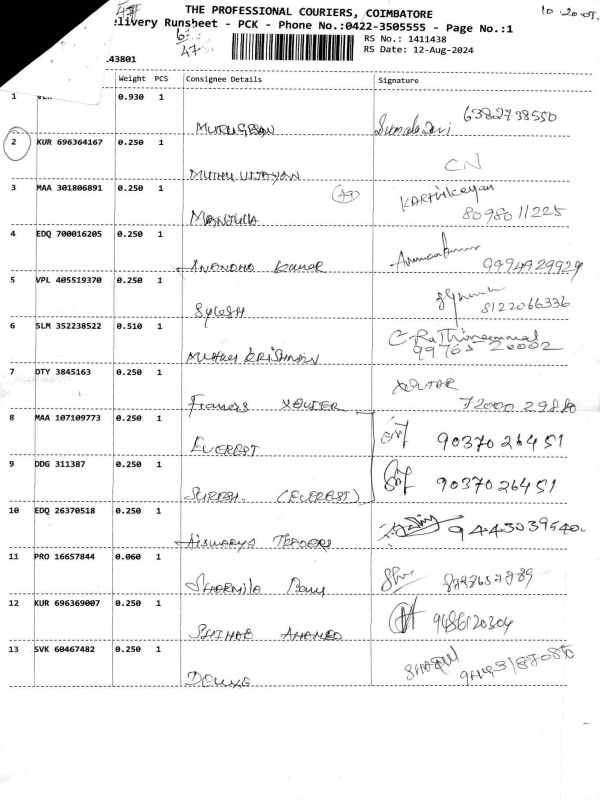 THE PROFESSIONAL COURIERS, COIMBATORE
10-20-
elivery Runsheet - PCK - Phone No.:0422-3505555 - Page No.:1
47
RS No.: 1411438
RS Date: 12-Aug-2024
43801
Weight PCS Consignee Details Signature
1 0.930 1
MURUGESAN 6382798550
2 KUR 696364167 0.250 1
MUTHU VIJAYAN CN
3 MAA 301806891 0.250 1
MANJULA 49 KARTHIKEYAN
8098011225
4 EDQ 700016205 0.250 1
ANANDHA KUMAR 9994929929
5 VPL 405519370 0.250 1
8122066336
6 SLM 352238522 0.510 1
MUTHU KRISHNAN C. Rathinammal
99765 20002
7 OTY 3845163 0.250 1
Francis XAVIER XAVIER
72000 29880
8 MAA 107109773 0.250 1
EVEREST 9037026451
9 DDG 311387 0.250 1
SURESH. (EVEREST) 9037026451
10 EDQ 26370518 0.250 1
AISWARYA TRADERS 9443039540
11 PRO 16657844 0.060 1
SHARMILA Banu
12 KUR 696369007 0.250 1
SHIHAB AHAMED 9486120304
13 SVK 60467482 0.250 1